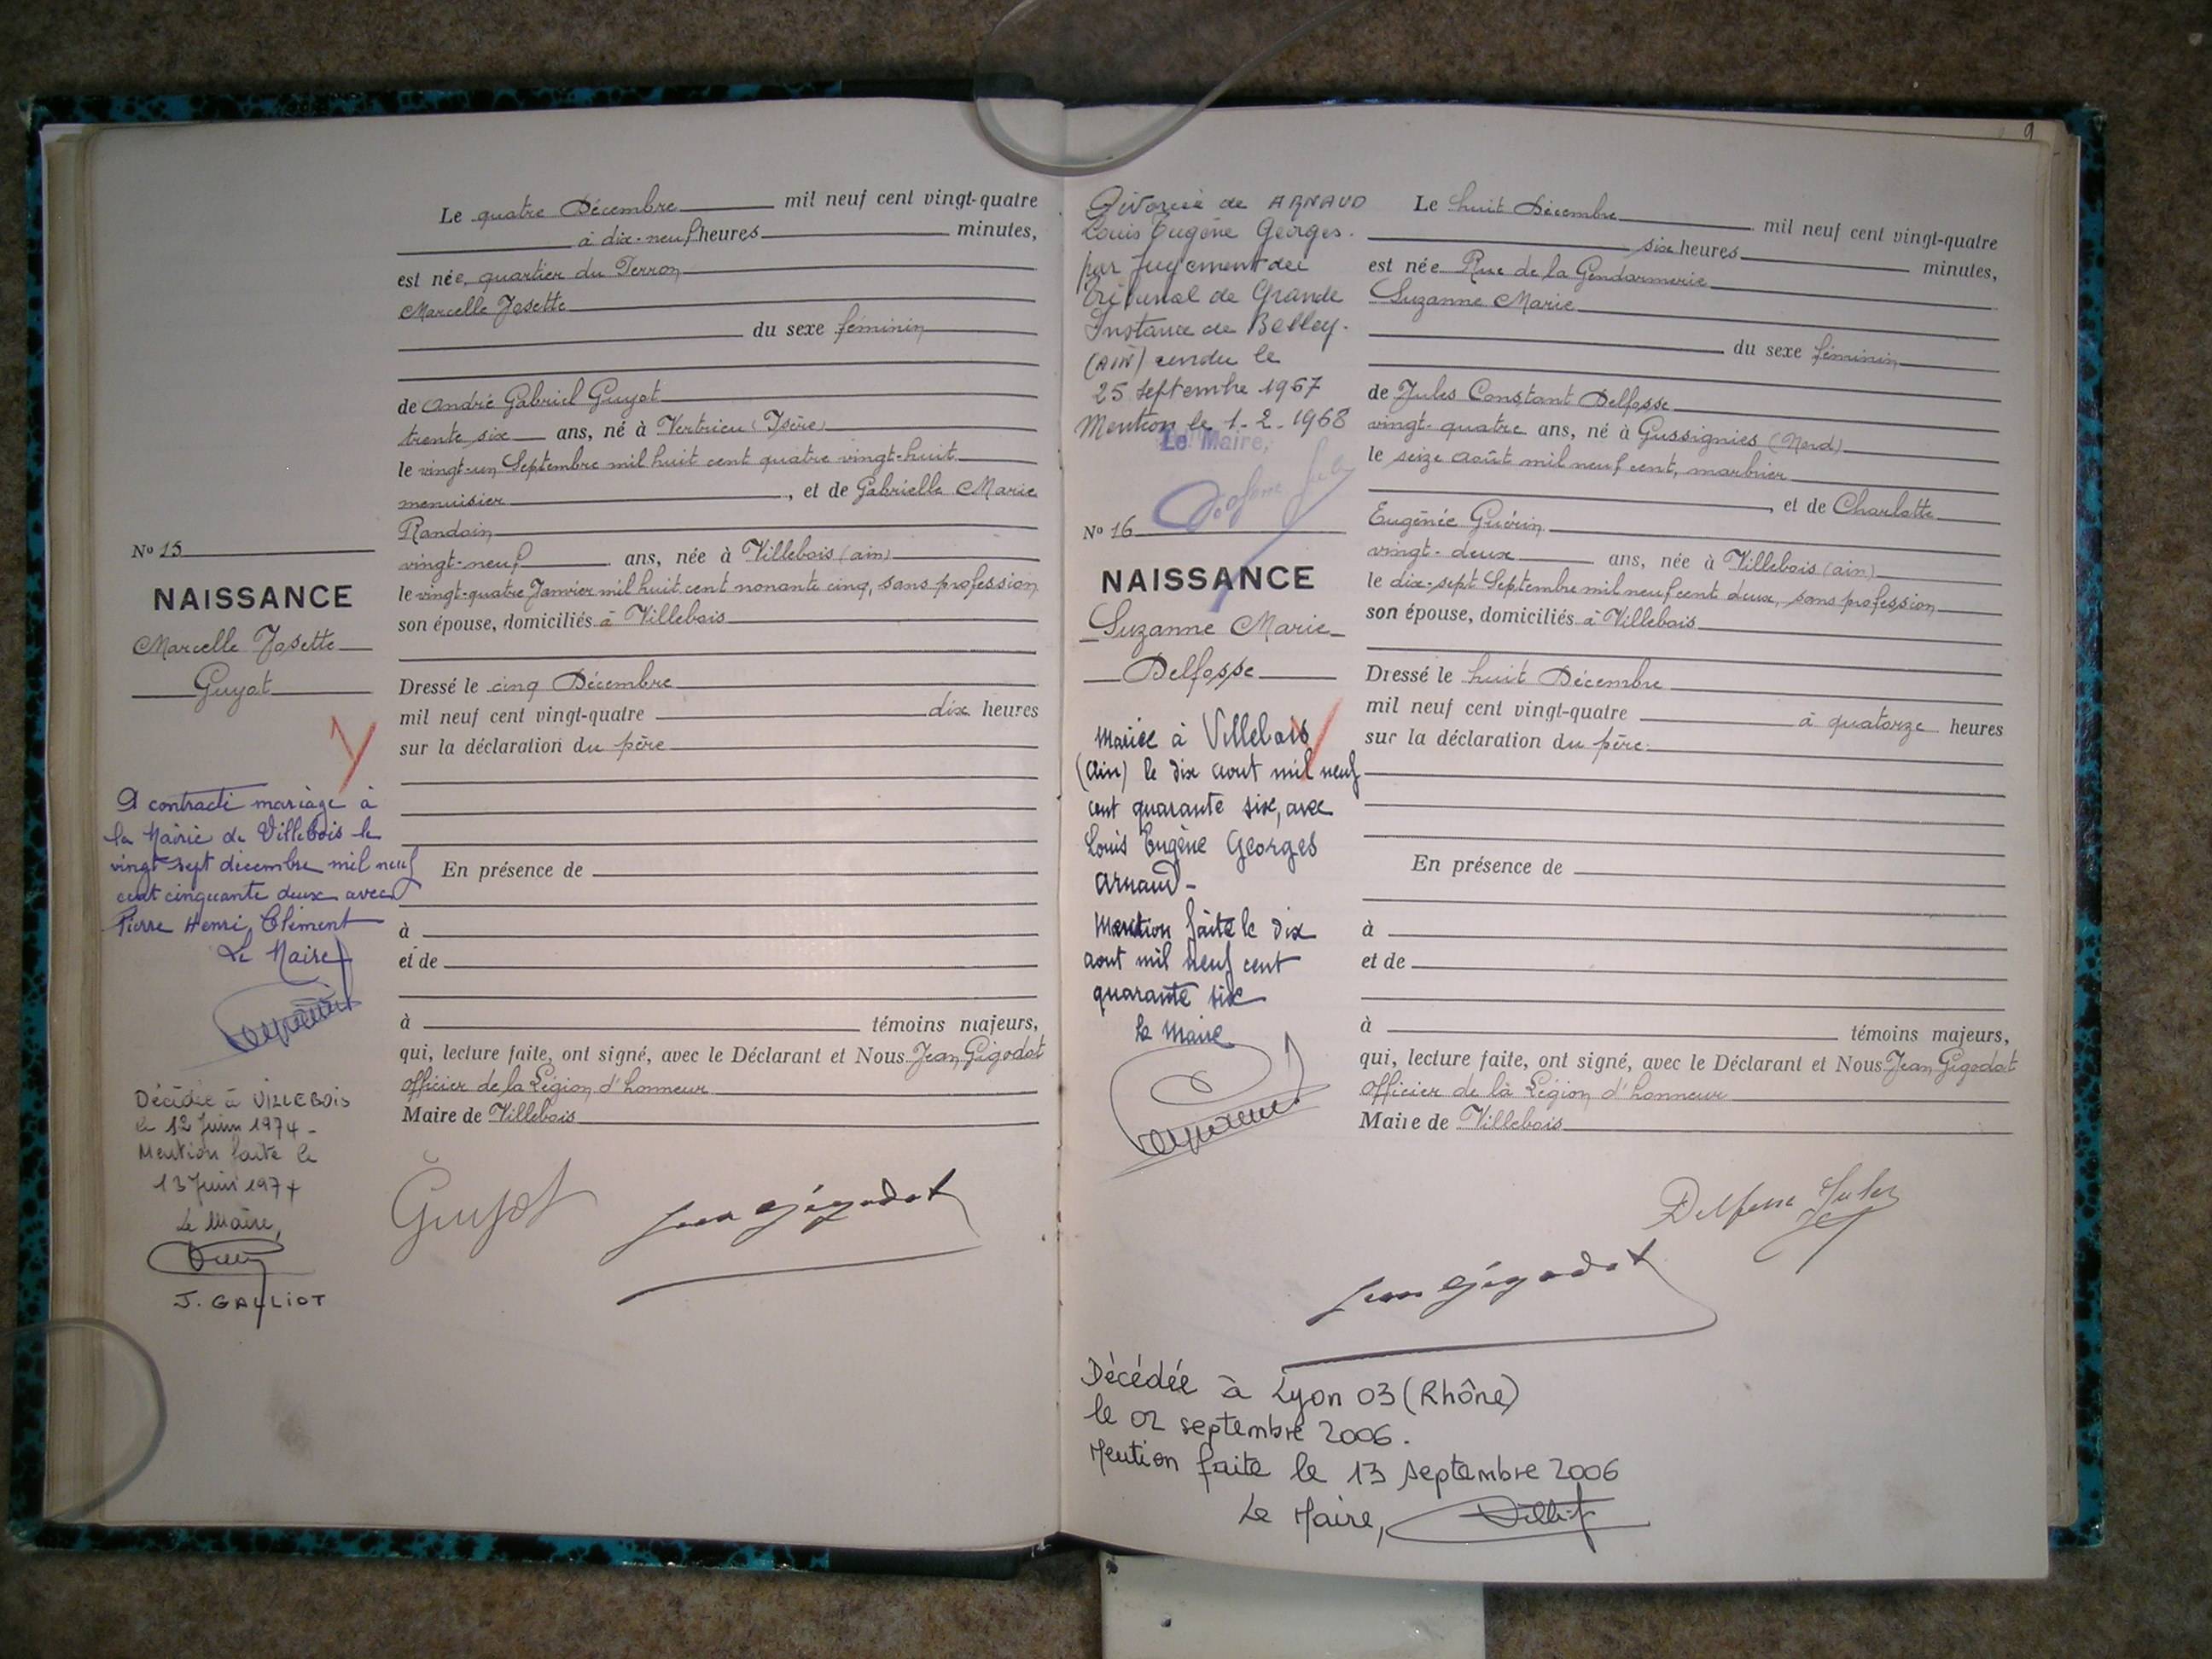 Le quatre Décembre mil neuf cent vingt-quatre
à dix-neuf heures minutes,
est née quartier du Terron
Marcelle Josette
du sexe féminin
de André Gabriel Guyot
trente six ans, né à Vertrieu (Isère)
le vingt-un Septembre mil huit cent quatre vingt-huit
menuisier, et de Gabrielle Marie
Randoin
vingt-neuf ans, née à Villebois (ain)
le vingt-quatre Janvier mil huit cent nonante cinq, sans profession
son épouse, domiciliés à Villebois
Dressé le cinq Décembre
mil neuf cent vingt-quatre dix heures
sur la déclaration du père
En présence de
à
et de
à témoins majeurs,
qui, lecture faite, ont signé, avec le Déclarant et Nous Jean Gigodot
officier de la Légion d'honneur
Maire de Villebois
Guyot
Jean Gigodot
No 15
NAISSANCE
Marcelle Josette
Guyot
A contracté mariage à
la Mairie de Villebois le
vingt sept décembre mil neuf
cent cinquante deux avec
Pierre Henri Clément
Le Maire
Décédée à VILLEBOIS
le 12 Juin 1974 -
Mention faite le
13 Juin 1974
Le Maire,
J. GALLIOT
9
Divorcée de ARNAUD
Louis Eugène Georges.
par Jugement du
Tribunal de Grande
Instance de Belley.
(AIN) rendu le
25 septembre 1967
Mention le 1-2-1968
Le Maire,
No 16
NAISSANCE
Suzanne Marie
Delfosse
Mariée à Villebois
(Ain) le dix aout mil neuf
cent quarante six, avec
Louis Eugène Georges
Arnaud -
Mention faite le dix
aout mil neuf cent
quarante six
le Maire
Le huit Décembre mil neuf cent vingt-quatre
six heures minutes,
est née Rue de la Gendarmerie
Suzanne Marie
du sexe féminin
de Jules Constant Delfosse
vingt-quatre ans, né à Gussignies (Nord)
le seize août mil neuf cent, marbrier
, et de Charlotte
Eugénie Guérin
vingt-deux ans, née à Villebois (ain)
le dix-sept Septembre mil neuf cent deux, sans profession
son épouse, domiciliés à Villebois
Dressé le huit Décembre
mil neuf cent vingt-quatre à quatorze heures
sur la déclaration du père
En présence de
à
et de
à témoins majeurs,
qui, lecture faite, ont signé, avec le Déclarant et Nous Jean Gigodot
officier de la Légion d'honneur
Maire de Villebois
Delfosse Jules
Jean Gigodot
Décédée à Lyon 03 (Rhône)
le 02 septembre 2006.
Mention faite le 13 septembre 2006
Le Maire,